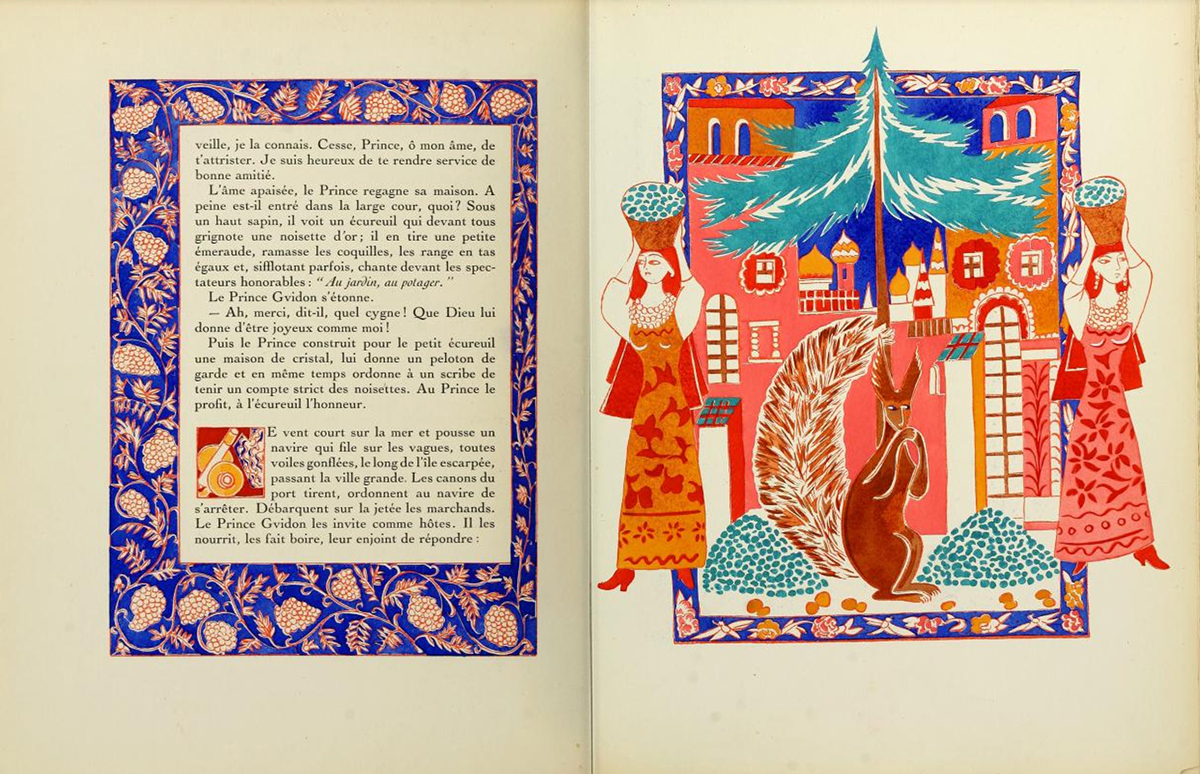 veille, je la connais. Cesse, Prince, ô mon âme, de
t'attrister. Je suis heureux de te rendre service de
bonne amitié.
L'âme apaisée, le Prince regagne sa maison. A
peine est-il entré dans la large cour, quoi? Sous
un haut sapin, il voit un écureuil qui devant tous
grignote une noisette d'or; il en tire une petite
émeraude, ramasse les coquilles, les range en tas
égaux et, sifflotant parfois, chante devant les spec-
tateurs honorables : "Au jardin, au potager."
Le Prince Gvidon s'étonne.
— Ah, merci, dit-il, quel cygne! Que Dieu lui
donne d'être joyeux comme moi!
Puis le Prince construit pour le petit écureuil
une maison de cristal, lui donne un peloton de
garde et en même temps ordonne à un scribe de
tenir un compte strict des noisettes. Au Prince le
profit, à l'écureuil l'honneur.
E vent court sur la mer et pousse un
navire qui file sur les vagues, toutes
voiles gonflées, le long de l'île escarpée,
passant la ville grande. Les canons du
port tirent, ordonnent au navire de
s'arrêter. Débarquent sur la jetée les marchands.
Le Prince Gvidon les invite comme hôtes. Il les
nourrit, les fait boire, leur enjoint de répondre :